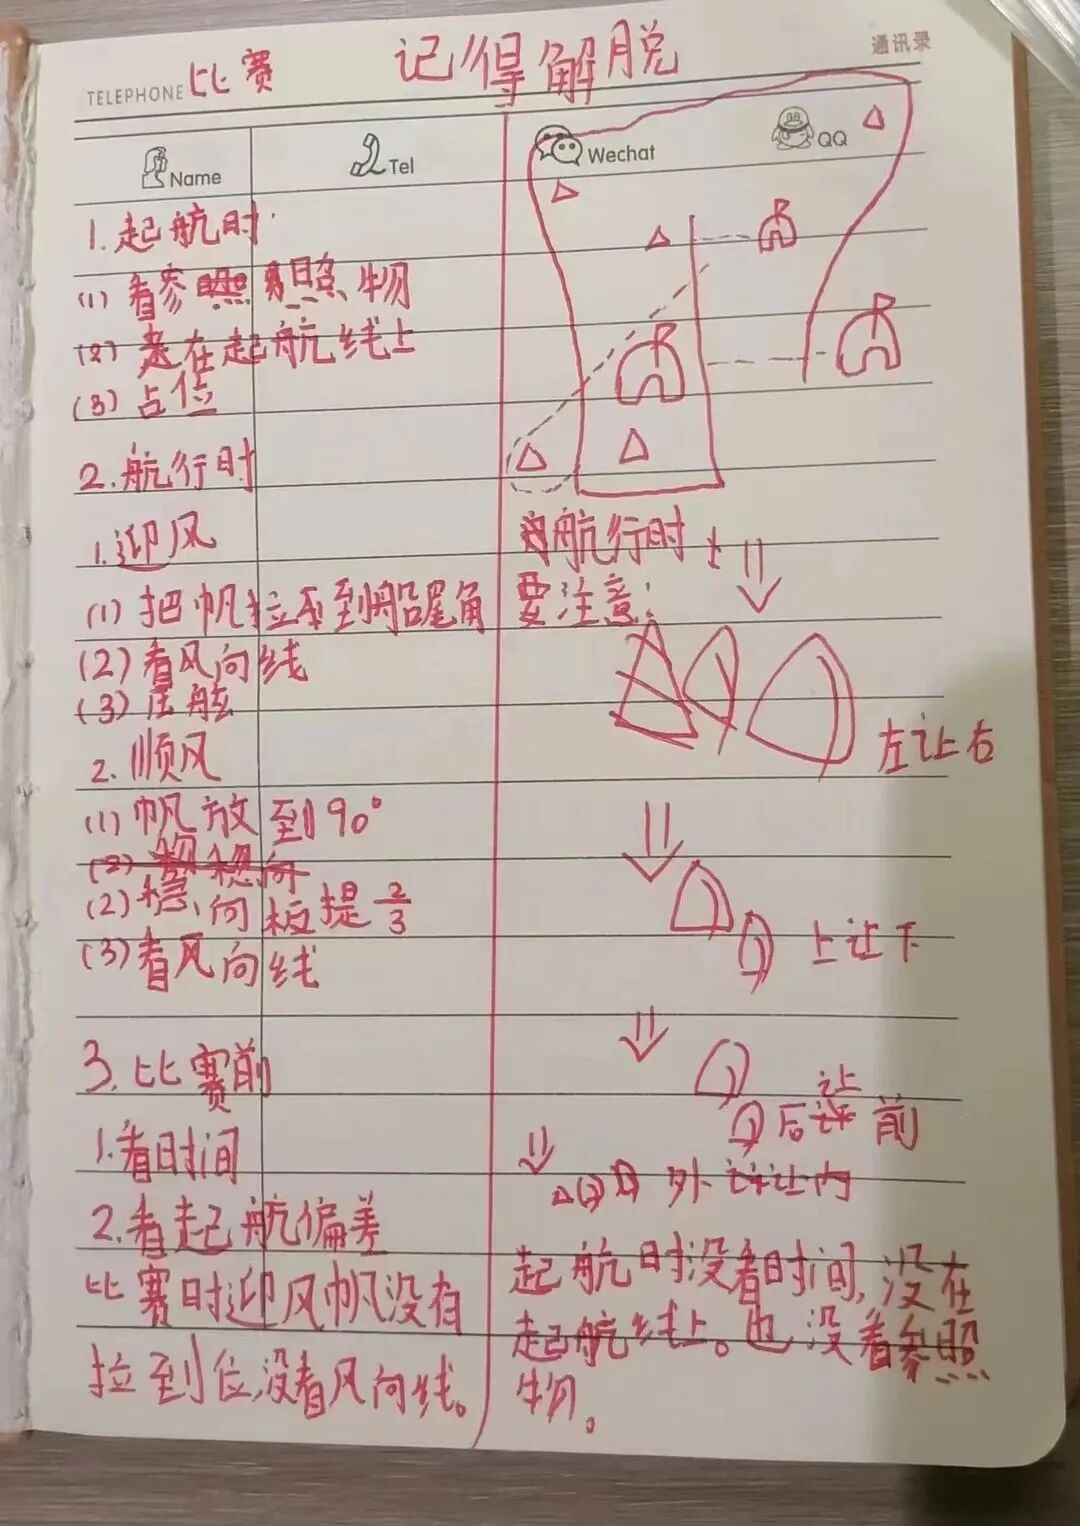 通讯录
TELEPHONE 比赛 记得解脱
Name Tel Wechat QQ
1.起航时
(1) 看参照物
(2) 在起航线上
(3) 占位
2.航行时
1.迎风
(1) 把帆拉到船尾角
(2) 看风向线
(3) 压舷
2.顺风
(1) 帆放到90°
(2) 稳向板提2/3
(3) 看风向线
3.比赛前
1.看时间
2.看起航偏差
比赛时迎风帆没有
拉到位,没看风向线。
航行时
要注意:
左让右
上让下
后让前
外让内
起航时没看时间,没在
起航线上。也没看参照
物。